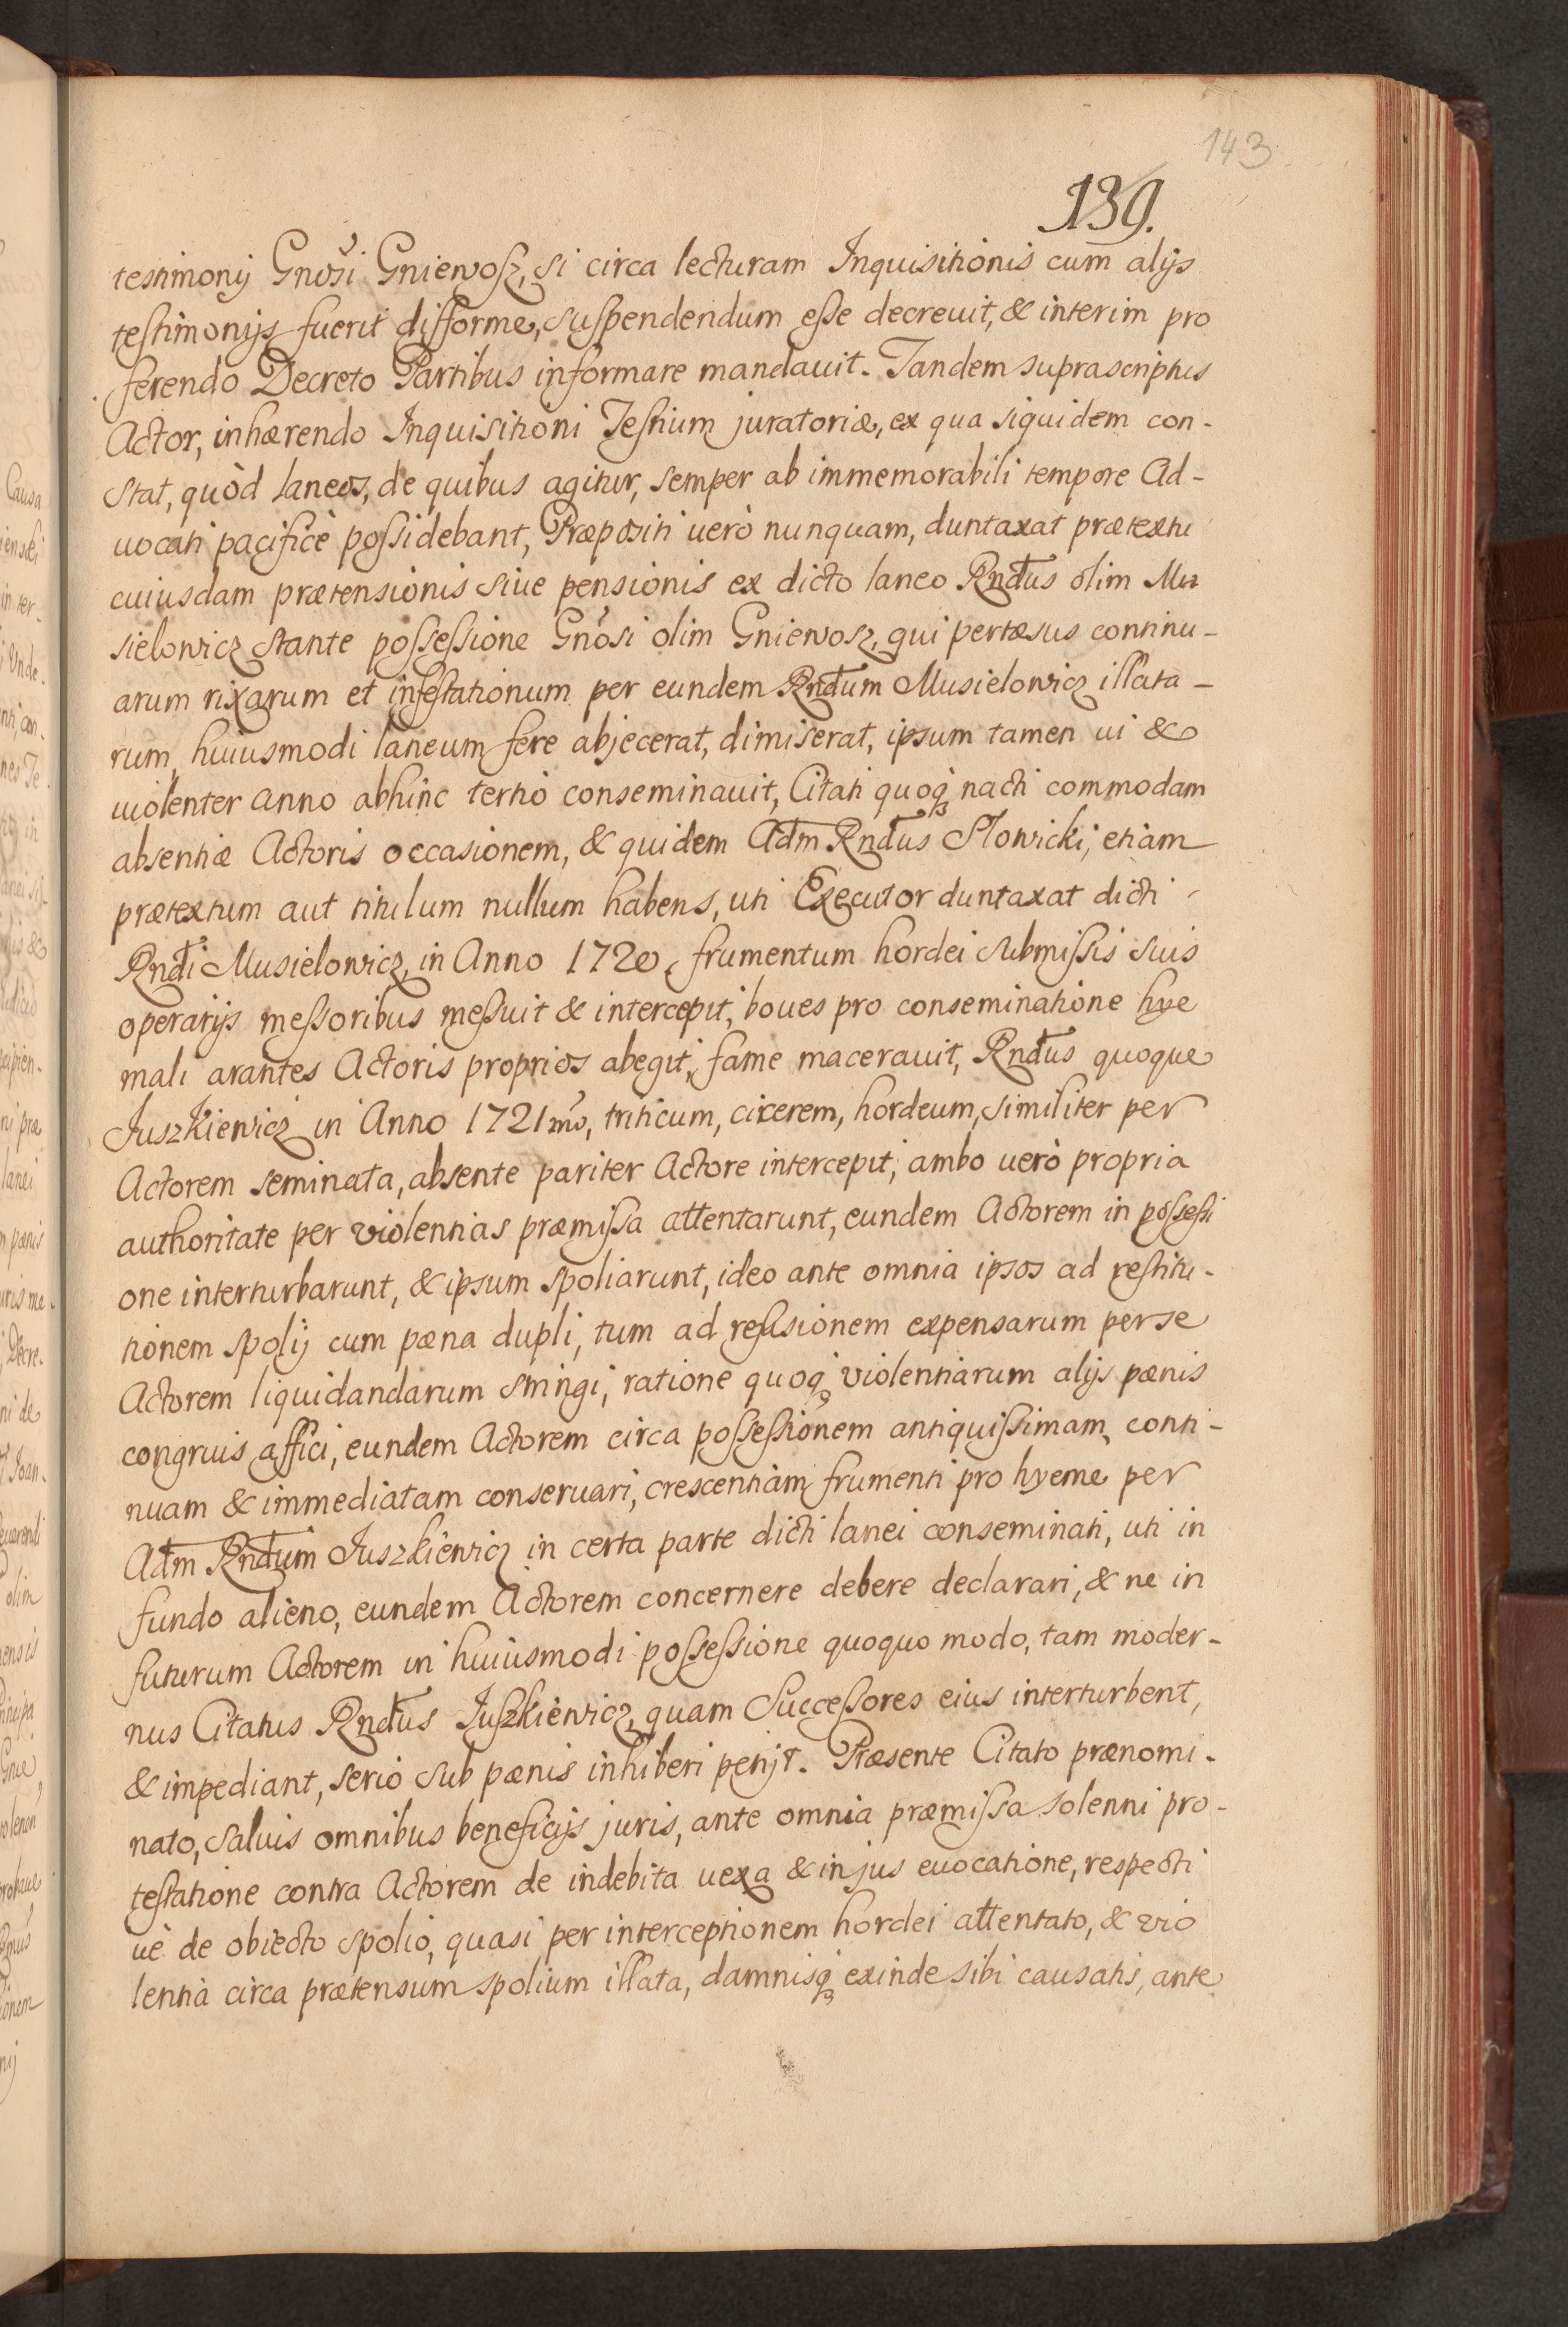 143
139.
testimonij Gnōsi Gniewosz, si circa lecturam Inquisitionis cum alijs
testimonijs fuerit difforme, suspendendum esse decreuit, & interim pro
ferendo Decreto Partibus informare mandauit. Tandem suprascriptus
Actor, inhærendo Inquisitioni Testium juratoriæ, ex qua siquidem con-
stat, quòd laneos, de quibus agitur, semper ab immemorabili tempore Ad-
uocati pacificè possidebant, Præpositi uerò nunquam, duntaxat prætextu
cuiusdam prætensionis siue pensionis ex dicto laneo Rndus olim Mu
sielowicz stante possessione Gnōsi olim Gniewosz, qui pertæsus continu-
arum rixarum et infestationum per eundem Rndum Musielowicz illata-
rum, huiusmodi laneum fere abjecerat, dimiserat, ipsum tamen ui &
uiolenter anno abhinc tertio conseminauit, Citati quoq; nacti commodam
absentiæ Actoris occasionem, & quidem Adm Rndus Słowicki, etiam
prætextum aut titulum nullum habens, uti Executor duntaxat dicti
Rndi Musielowicz, in Anno 1720, frumentum hordei submissis suis
operarijs messoribus messuit & intercepit, boues pro conseminatione hye
mali arantes Actoris proprios abegit, fame macerauit, Rndus quoque
Juszkiewicz in Anno 1721mo, triticum, cicerem, hordeum, similiter per
Actorem seminata, absente pariter Actore intercepit, ambo uerò propria
authoritate per violentias præmissa attentarunt, eundem Actorem in possessi
one interturbarunt, & ipsum spoliarunt, ideo ante omnia ipsos ad restitu-
tionem spolij cum pæna dupli, tum ad refusionem expensarum per se
Actorem liquidandarum stringi, ratione quoq; violentiarum alijs pænis
congruis affici, eundem Actorem circa possessionem antiquissimam, conti-
nuam & immediatam conseruari, crescentiam frumenti pro hyeme per
Adm Rndum Juszkiewicz in certa parte dicti lanei conseminati, uti in
fundo alieno, eundem Actorem concernere debere declarari, & ne in
futurum Actorem in huiusmodi possessione quoquo modo, tam moder-
nus Citatus Rndus Juszkiewicz, quam Successores eius interturbent,
& impediant, serio sub pænis inhiberi petijt. Præsente Citato prænomi-
nato, saluis omnibus beneficijs juris, ante omnia præmissa solenni pro-
testatione contra Actorem de indebita uexa & in jus euocatione, respecti
uè de obiecto spolio, quasi per interceptionem hordei attentato, & vio
lentia circa prætensum spolium illata, damnisq; exinde sibi causatis, ante